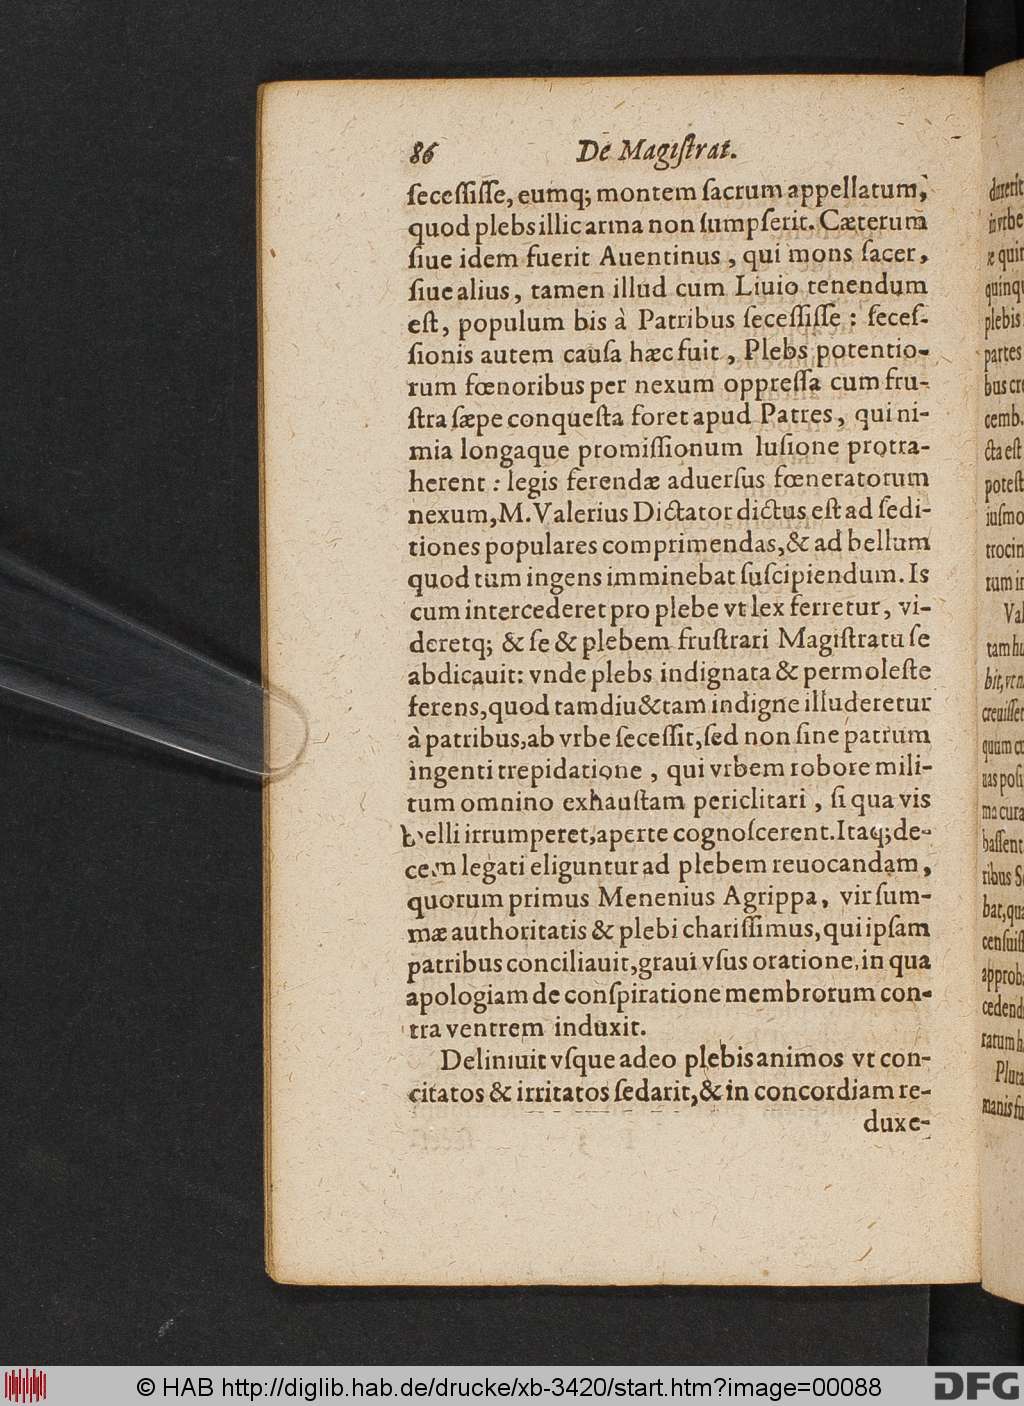 86 De Magiſtrat.
ſeceſſiſſe, eumq; montem ſacrum appellatum,
quod plebs illic arma non ſumpſerit. Cæterum
ſiue idem fuerit Auentinus, qui mons ſacer,
ſiue alius, tamen illud cum Liuio tenendum
eſt, populum bis à Patribus ſeceſſiſſe: ſeceſ-
ſionis autem cauſa hæc fuit, Plebs potentio-
rum fœnoribus per nexum oppreſſa cum fru-
ſtra ſæpe conqueſta foret apud Patres, qui ni-
mia longaque promiſſionum luſione protra-
herent: legis ferendæ aduerſus fœneratorum
nexum, M. Valerius Dictator dictus eſt ad ſedi-
tiones populares comprimendas, & ad bellum
quod tum ingens imminebat ſuſcipiendum. Is
cum intercederet pro plebe vt lex ferretur, vi-
deretq; & ſe & plebem fruſtrari Magiſtratu ſe
abdicauit: vnde plebs indignata & permoleſte
ferens, quod tamdiu & tam indigne illuderetur
à patribus, ab vrbe ſeceſſit, ſed non ſine patrum
ingenti trepidatione, qui vrbem robore mili-
tum omnino exhauſtam periclitari, ſi qua vis
belli irrumperet, aperte cognoſcerent. Itaq; de-
cem legati eliguntur ad plebem reuocandam,
quorum primus Menenius Agrippa, vir ſum-
mæ authoritatis & plebi chariſſimus, qui ipſam
patribus conciliauit, graui vſus oratione, in qua
apologiam de conſpiratione membrorum con-
tra ventrem induxit.
Deliniuit vſque adeo plebis animos vt con-
citatos & irritatos ſedarit, & in concordiam re-
duxe-
© HAB http://diglib.hab.de/drucke/xb-3420/start.htm?image=00088
DFG